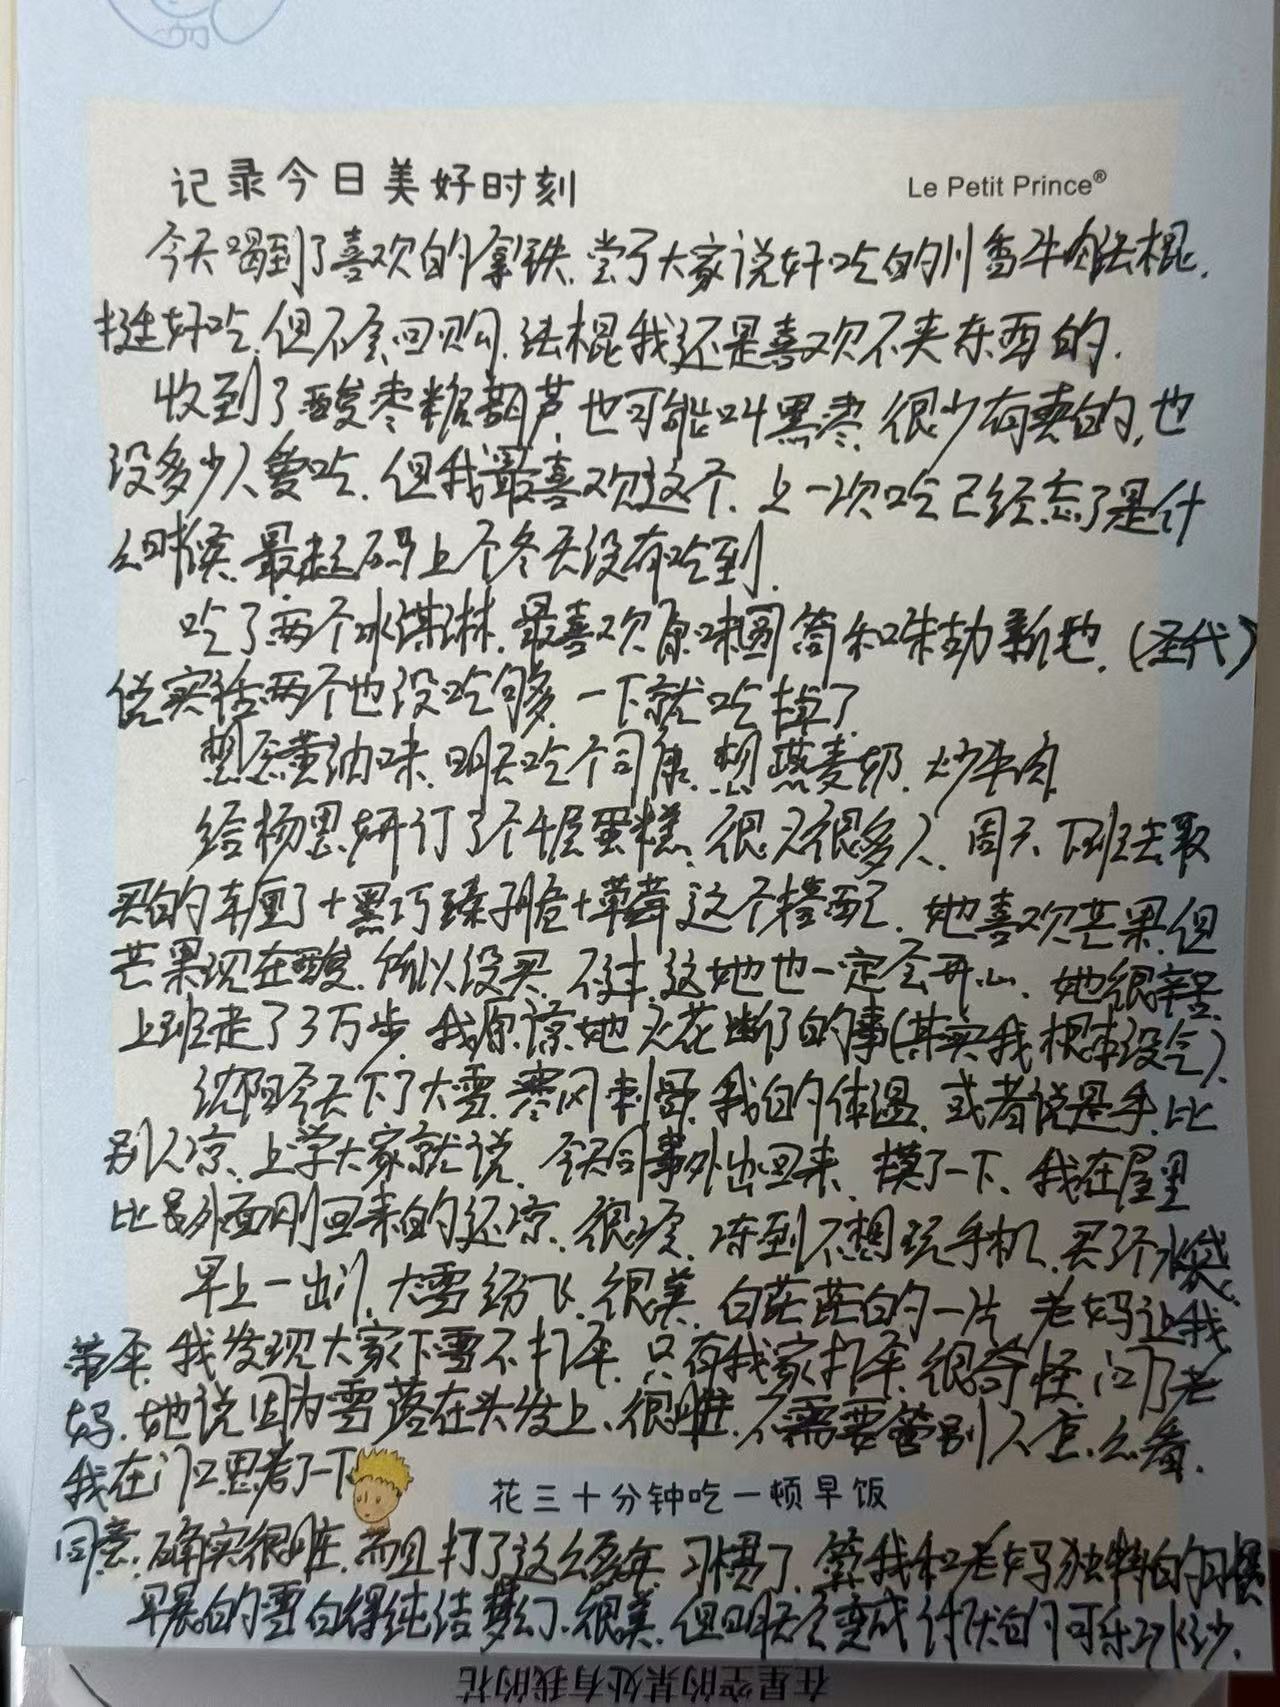 记录今日美好时刻
Le Petit Prince®
今天喝到了喜欢的拿铁.尝了大家说好吃的川香牛肉法棍.
挺好吃.但不会回购.法棍我还是喜欢不夹东西的.
收到了酸枣糖葫芦也可能叫黑枣.很少有卖的,也
没多少人爱吃.但我最喜欢这个.上一次吃已经忘了是什
么时候.最起码上个冬天没有吃到.
吃了两个冰淇淋.最喜欢原味圆筒和味劲新地.(圣代)
说实话两个也没吃够.一下就吃掉了
想念黄油味.明天吃个同康.想燕麦奶.炒牛肉
给杨思妍订了个4层蛋糕.很火很多人.周天下班去取
买的车厘子+黑巧榛子脆+草莓这个搭配.她喜欢芒果但
芒果现在酸.所以没买.不过.这她也一定会开心.她很辛苦
上班走了3万步.我原谅她火花断了的事(其实我根本没气).
沈阳今天下了大雪.寒风刺骨.我的体温.或者说是手.比
别人凉.上学大家就说.今天同事外出回来.摸了一下.我在屋里
比另外面刚回来的还凉.很凉.冻到不想玩手机.买了个水袋.
早上一出门.大雪纷飞.很美.白茫茫的一片 老妈让我
带伞.我发现大家下雪不打伞.只有我家打伞.很奇怪.问了老
妈.她说因为雪落在头发上.很脏.不需要管别人怎么看.
我在门口思考了一下
花三十分钟吃一顿早饭
同意.确实很脏.而且打了这么多年.习惯了.算我和老妈独特的习惯
早晨的雪白得纯洁梦幻.很美.但明天会变成讨厌的可乐冰沙.
在星空的某处有我的花